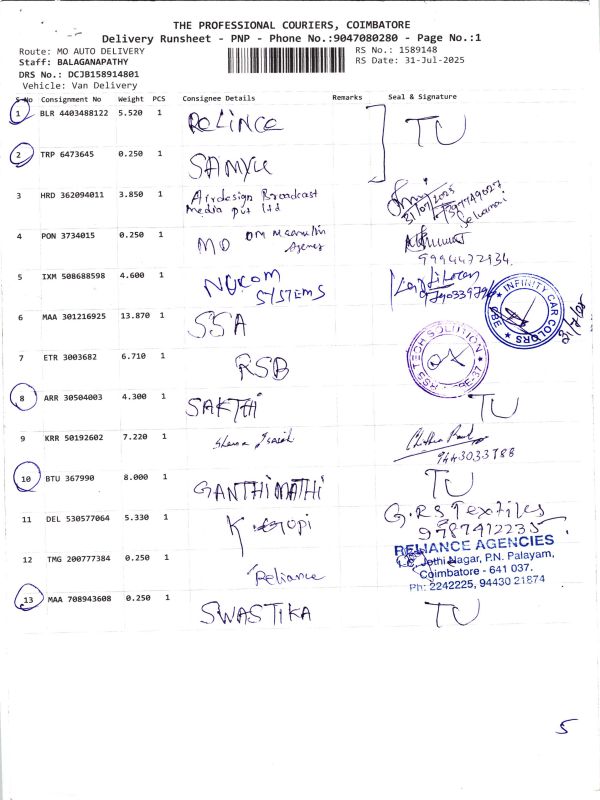 THE PROFESSIONAL COURIERS, COIMBATORE
Delivery Runsheet - PNP - Phone No.:9047080280 - Page No.:1
Route: MO AUTO DELIVERY RS No.: 1589148
Staff: BALAGANAPATHY RS Date: 31-Jul-2025
DRS No.: DCJB158914801
Vehicle: Van Delivery
S No Consignment No Weight PCS Consignee Details Remarks Seal & Signature
1 BLR 4403488122 5.520 1 RELINCE TU
2 TRP 6473645 0.250 1 SAMYU
3 HRD 362094011 3.850 1 Afrdesign Broadcast
Media pvt ltd
31/07/2025
4 PON 3734015 0.250 1 MD
Agency
9994472934
5 IXM 508688598 4.600 1 NUCOM
SYSTEMS
6 MAA 301216925 13.870 1 SSA
INFINITY CAR COLORS
7 ETR 3003682 6.710 1 RSB
TECH SOLUTION
8 ARR 30504003 4.300 1 SAKTHI TU
9 KRR 50192602 7.220 1
9443033788
10 BTU 367990 8.000 1 GANTHIMATHI TU
11 DEL 530577064 5.330 1 G.R.S Textiles
9787412235
12 TMG 200777384 0.250 1 Reliance
RELIANCE AGENCIES
Jothi Nagar, P.N. Palayam,
Coimbatore - 641 037.
Ph: 2242225, 94430 21874
13 MAA 708943608 0.250 1 SWASTIKA TU
5